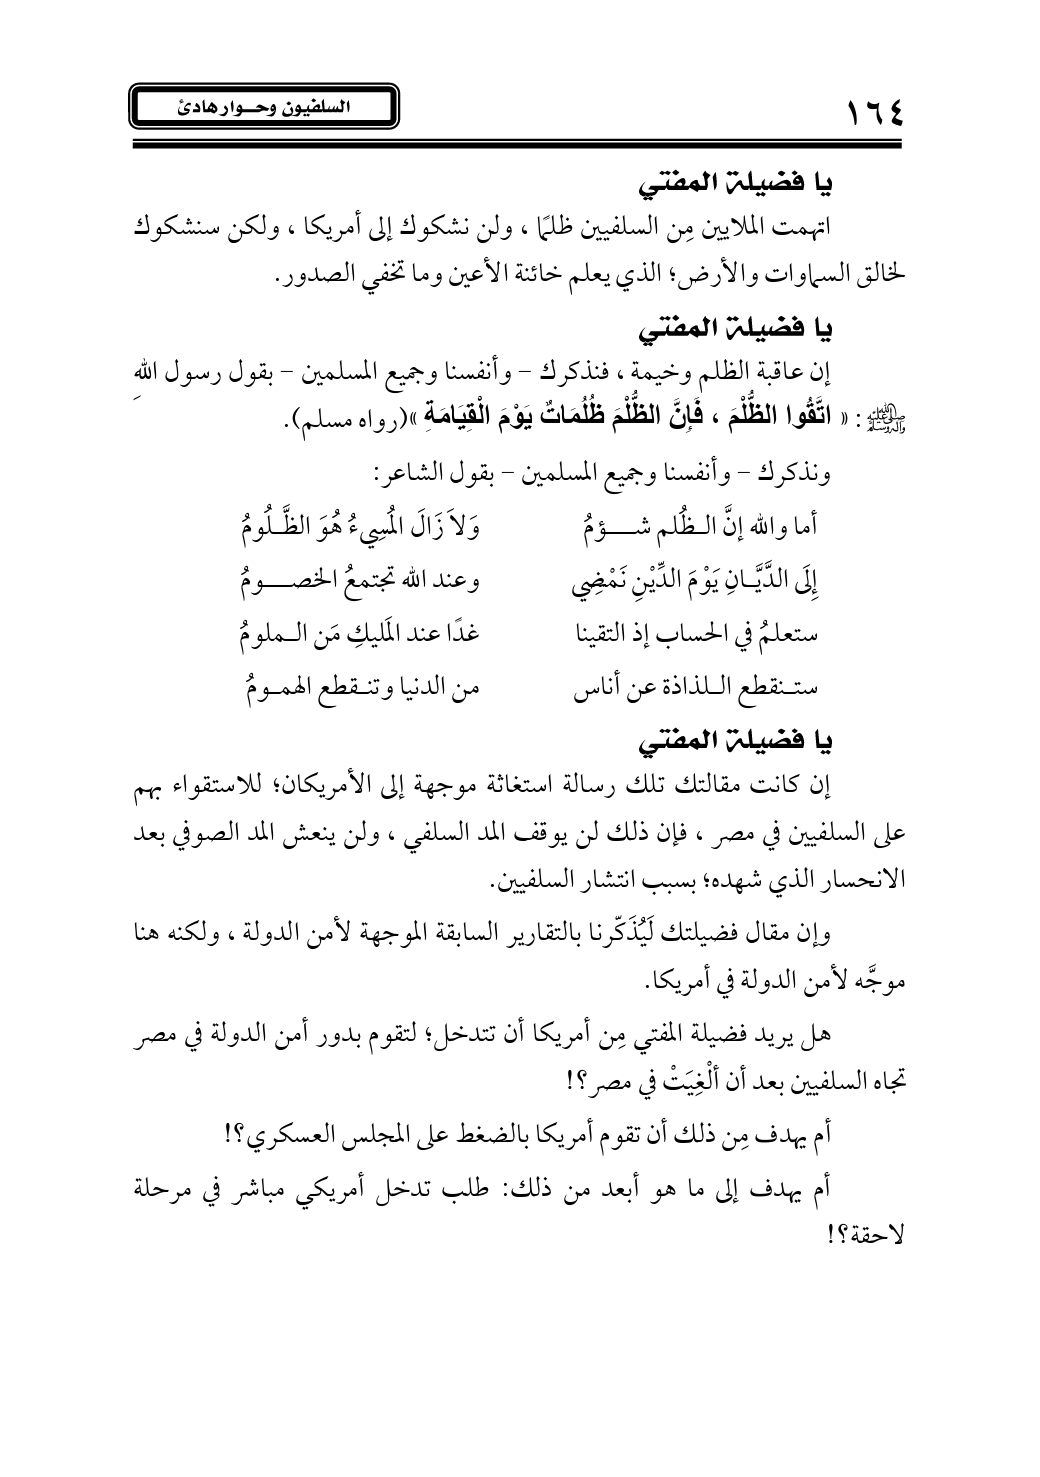 ١٦٤
السلفيون وحـوار هادئ
يا فضيلة المفتي
اتهمت الملايين مِن السلفيين ظلمًا ، ولن نشكوك إلى أمريكا ، ولكن سنشكوك
لخالق السماوات والأرض؛ الذي يعلم خائنة الأعين وما تخفي الصدور.
يا فضيلة المفتي
إن عاقبة الظلم وخيمة ، فنذكرك – وأنفسنا وجميع المسلمين – بقول رسول اللهِ
ﷺ: « اتَّقُوا الظُّلْمَ ، فَإِنَّ الظُّلْمَ ظُلُمَاتٌ يَوْمَ الْقِيَامَةِ »(رواه مسلم).
ونذكرك – وأنفسنا وجميع المسلمين – بقول الشاعر:
أما والله إنَّ الـظُلم شـــؤمُ وَلاَ زَالَ المُسِيءُ هُوَ الظَّـلُومُ
إِلَى الدَّيَّـانِ يَوْمَ الدِّيْنِ نَمْضِي وعند الله تجتمعُ الخصـــومُ
ستعلمُ في الحساب إذ التقينا غدًا عند المَليكِ مَن الـملومُ
ستـنقطع الـلذاذة عن أناس من الدنيا وتنـقطع الهمـومُ
يا فضيلة المفتي
إن كانت مقالتك تلك رسالة استغاثة موجهة إلى الأمريكان؛ للاستقواء بهم
على السلفيين في مصر ، فإن ذلك لن يوقف المد السلفي ، ولن ينعش المد الصوفي بعد
الانحسار الذي شهده؛ بسبب انتشار السلفيين.
وإن مقال فضيلتك لَيُذَكّرنا بالتقارير السابقة الموجهة لأمن الدولة ، ولكنه هنا
موجَّه لأمن الدولة في أمريكا.
هل يريد فضيلة المفتي مِن أمريكا أن تتدخل؛ لتقوم بدور أمن الدولة في مصر
تجاه السلفيين بعد أن ألْغِيَتْ في مصر؟!
أم يهدف مِن ذلك أن تقوم أمريكا بالضغط على المجلس العسكري؟!
أم يهدف إلى ما هو أبعد من ذلك: طلب تدخل أمريكي مباشر في مرحلة
لاحقة؟!